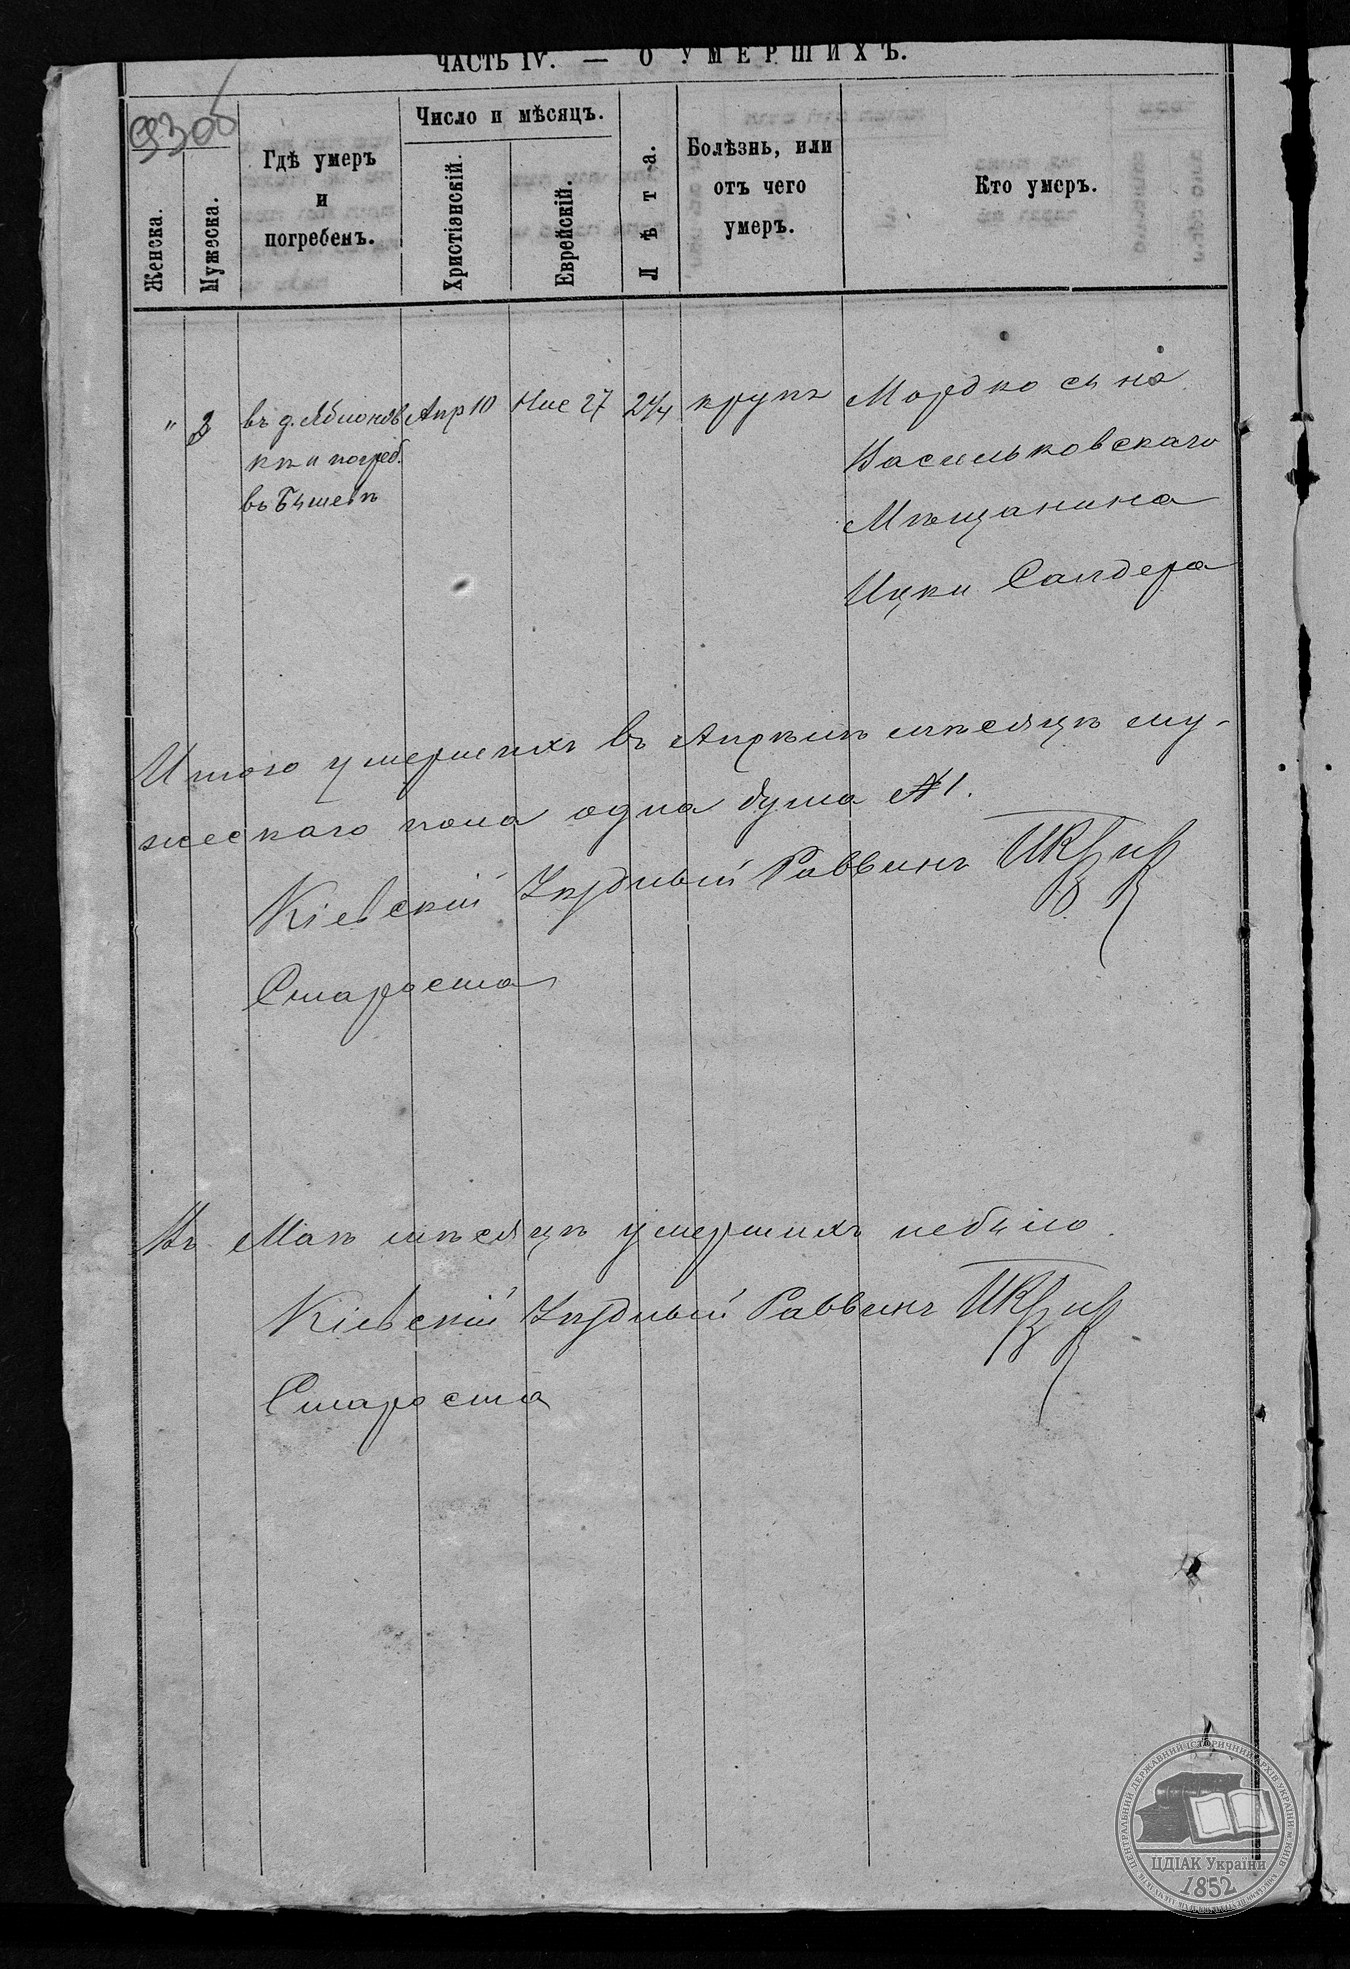 ЧАСТЬ IV. — О УМЕРШИХЪ.
930об
Женска.
Мужеска.
Гдѣ умеръ
и
погребенъ.
Число и мѣсяцъ.
Христіанскій.
Еврейскій.
Лѣта.
Болѣзнь, или
отъ чего
умеръ.
Кто умеръ.
" 3 въ д. Яблонов Апр 10 Нис 27 2 1/4 крупъ Мордко сынъ
кѣ и погреб. Васильковскаго
въ Бышевѣ Мѣщанина
Ицки Сандера
Итого умершихъ въ Апрѣлѣ мѣсяцѣ му-
жескаго пола одна душа № 1.
Кіевскій Уѣздный Раввинъ
Староста
Въ Маѣ мѣсяцѣ умершихъ небыло.
Кіевскій Уѣздный Раввинъ
Староста
ЦЕНТРАЛЬНИЙ ДЕРЖАВНИЙ ІСТОРИЧНИЙ АРХІВ УКРАЇНИ, м. КИЇВ
ЦДІАК України
1852